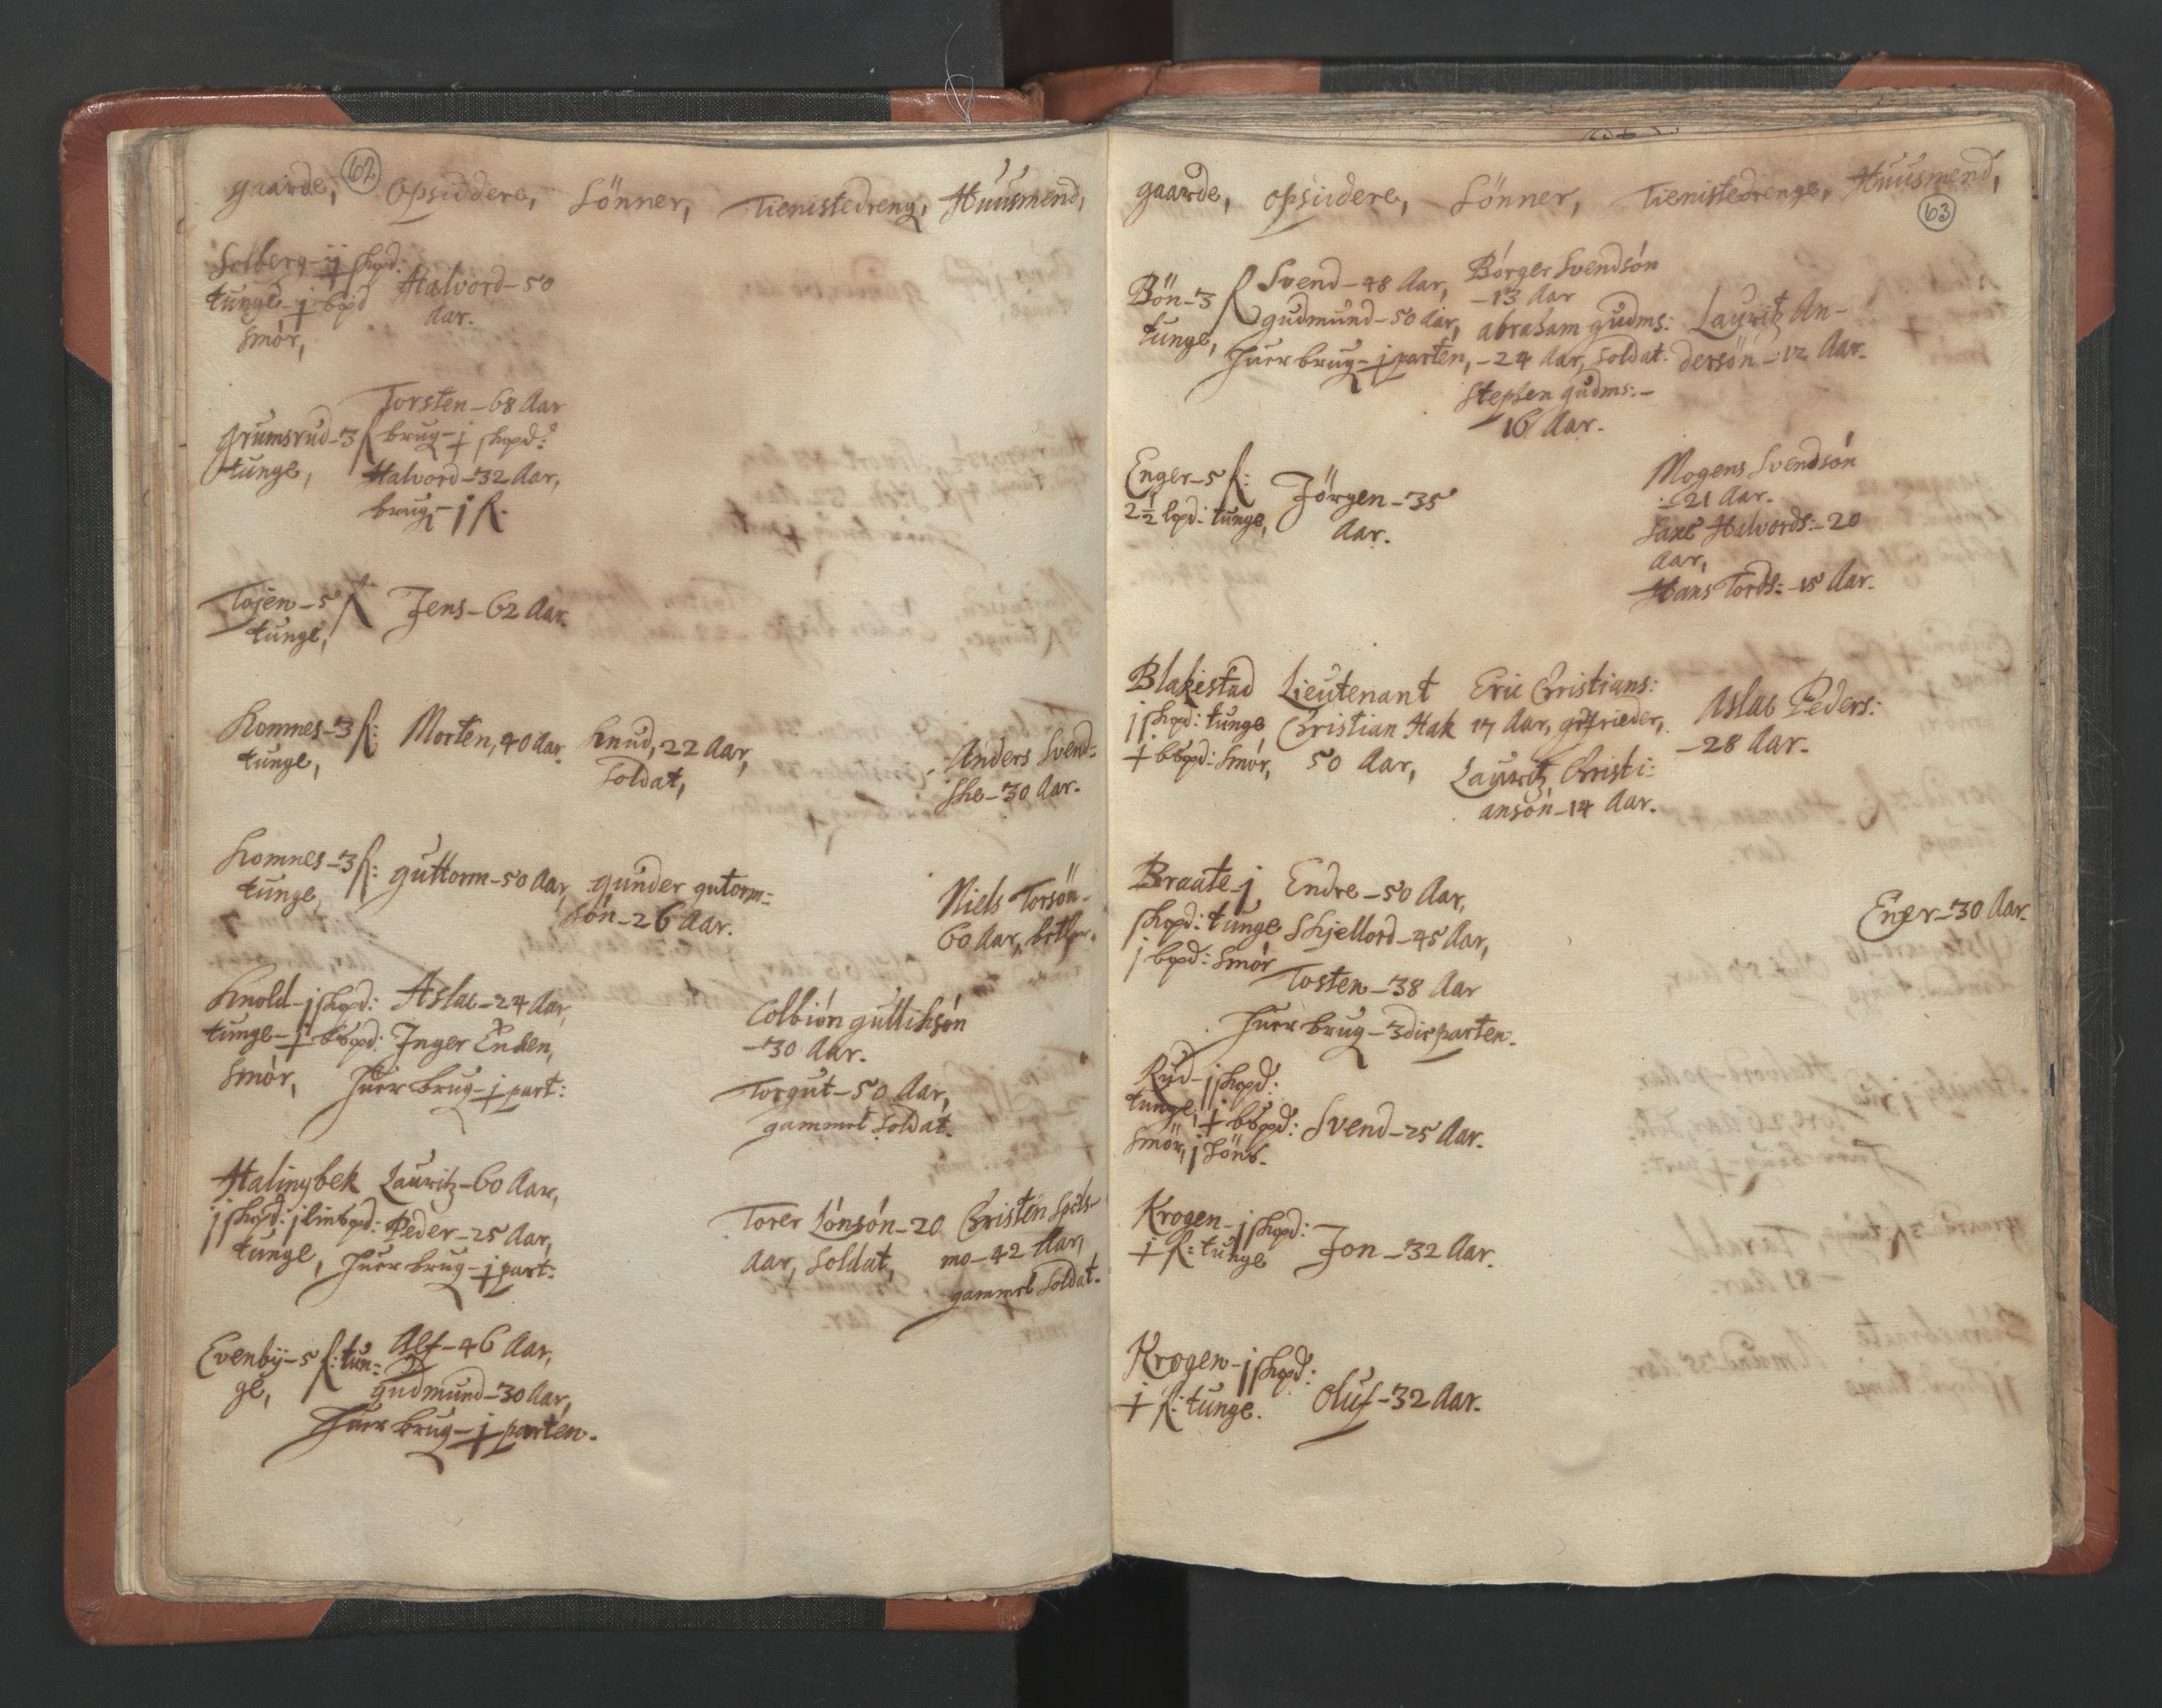 62
gaarde, opsiddere, Sönner, Tienistedreng, Huusmend,
Solberg - ij skpd:
tunge - j bpd
Smör,
Halvord - 50
Aar.
Torsten - 68 Aar
brug - j skpd:
Grumsrud - 3
tunge,
Halvord - 32 Aar,
brug -
Tojen - 5
tunge,
Jens - 62 Aar.
Komnes - 3
tunge,
Morten, 40 Aar.
Knud, 22 Aar,
Soldat,
Anders Svend-
ske - 30 Aar.
Komnes - 3
tunge,
guttorm - 50 Aar,
gunder gutorm-
sön - 26 Aar.
Niels Torsön -
60 Aar,
Knold - j skpd:
tunge - bpd:
Smör,
Aslac - 24 Aar,
Inger Enken,
huer brug - part:
Colbiön gulliksön
- 30 Aar.
Torgut - 50 Aar,
gammel Soldat.
Halingbek
j skpd: j
tunge,
Lauritz - 60 Aar,
Peder - 25 Aar,
huer brug - part:
Torer Jönsön - 20
Aar, Soldat,
Christen
mo - 42 Aar,
gammel Soldat.
Evenbÿ - 5 tun-
ge,
Alf - 46 Aar,
gudmund - 30 Aar,
huer brug - parten.
gaarde, opsiddere, Sönner, Tienistedrenge, Huusmend,
63
Bön - 3
tunge,
Svend - 48 Aar,
gudmund - 50 Aar,
huer brug - parten,
Börger Svendsön
- 13 Aar
abraham gudms:
- 24 Aar, Soldat.
Stephen gudms: -
16 Aar.
Lauritz An-
dersön - 12 Aar.
Enger - 5
2½ lspd: tunge,
Jörgen - 35
Aar.
Mogens Svendsön
- 21 Aar.
Saxe Halvords: - 20
Aar,
Hans Tords: - 15 Aar.
Blakestad
j skpd: tunge
bpd: Smör,
Lieutenant
Christian Hak
50 Aar,
Eric Christians:
17 Aar, gefrieder,
Lauritz Christi:
ansön - 14 Aar.
Aslac Peders:
- 28 Aar.
Braate - j
skpd: tunge
j bpd: Smör
Endre - 50 Aar,
Skjellord - 45 Aar,
Tosten - 38 Aar
huer brug - 3die parten.
Ener - 30 Aar.
Rud - j skpd:
tunge, bpd:
Smör,
Svend - 25 Aar.
Krogen - j skpd:
tunge
Jon - 32 Aar.
Krogen - j skpd:
tunge.
Oluf - 32 Aar.